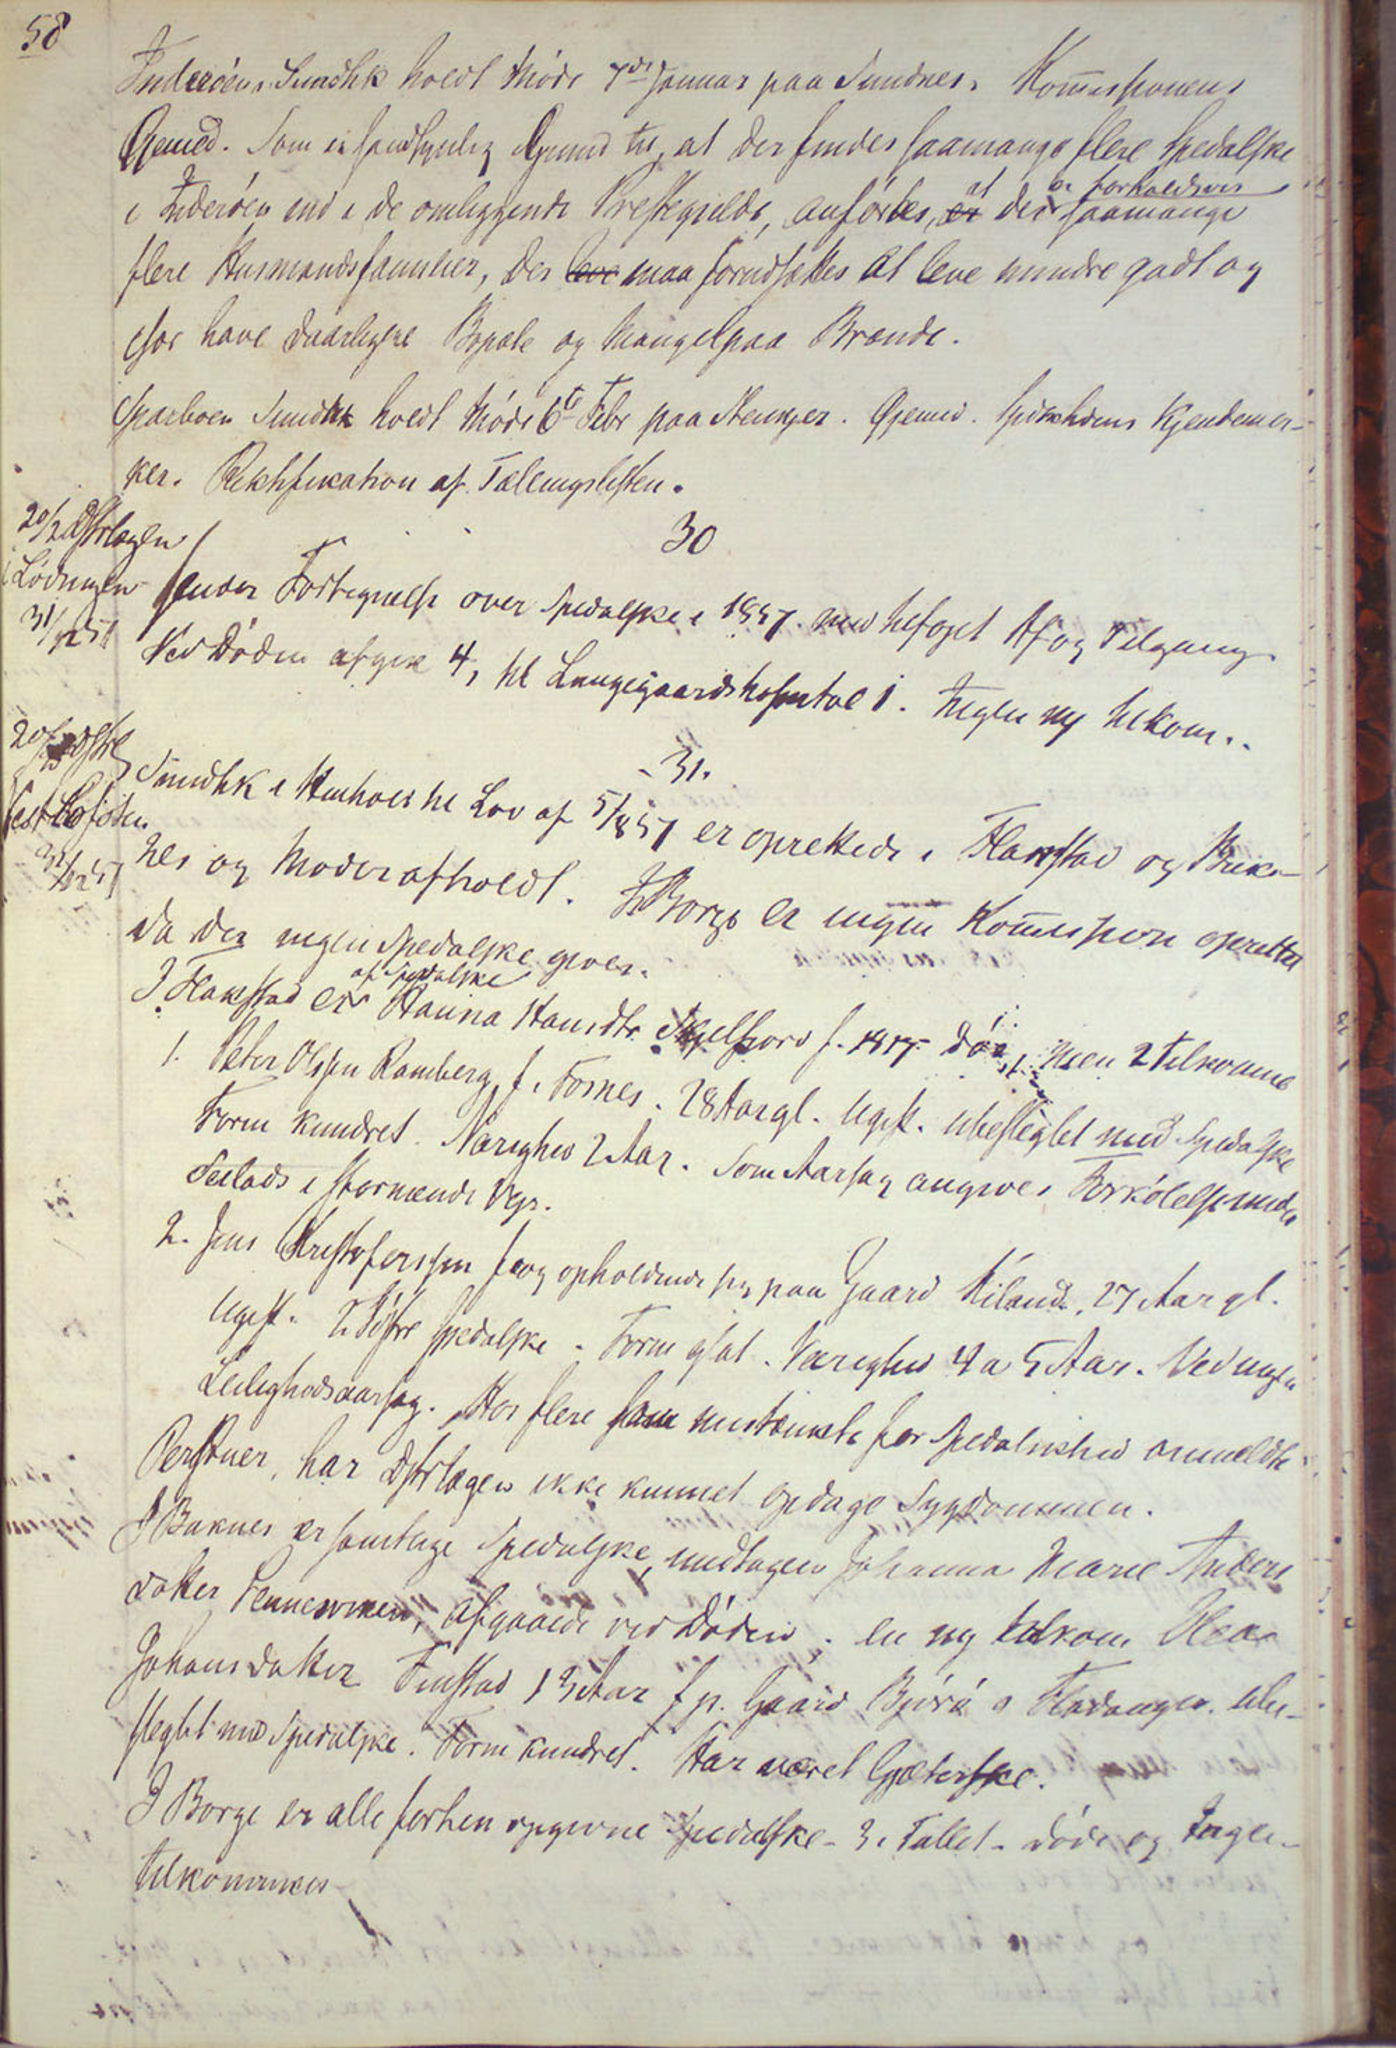 58
Inderöens Sundhk holdt Møde 7de Januar paa Sundnes. Kommissionens
Øiemed. Som en sandsynlig Grund til, at der findes saamange flere Spedalske
i Inderöen end i de omliggende Præstegjelde, anførtes, at der er forholdsvis saamange
flere Husmandsfamilier, der maa forudsættes at leve mindre godt og
have daarligere Bopæle og Mangel paa Brænde.
Sparboen Sundhk holdt Møde 6te Febr paa Steinkjer. Øiemed. Spedskhdens Kjendemær-
ker. Rektifikation af Tællingslisten.
30
20/2 Dstrlægen
i Lödingen
31/12 57
sender Fortegnelse over Spedalske i 1857 med tilføiet Af og Tilgang
Ved Døden afgik 4, til Lungegaardshospital 1. Ingen ny tilkom.
31.
20/2 Dstrl
Vest Lofoten
31/12 57
Sundhk i Henhold til Lov af 5/857 er oprettede i Flakstad og Buks-
nes og Møder afholdt. I Borge er ingen Kommission oprettet
da der ingen Spedalske gives.
I Flakstad er af Spedalske Hanna Hansdtr Skjelfjord f. 1817 död, men 2 tilkomne
1. Peter Olsen Ramberg, f. i Fosnes. 28 Aar gl. Ugift. Ubeslegtet med Spedalske
Form knudret. Varighed 2 Aar. Som Aarsag angives Forkölelse under
Seilads i stormende Veir.
2. Jens Kristofersen f. og opholdende sig paa Gaard Kilands, 27 Aar gl.
Ugift. 2 Söstre spedalske. Form glat. Varighed 4 a 5 Aar. Ved ingen
Leilighedsaarsag. Hos flere som mistænkte for Spedalskhed anmeldte
Personer, har Dstrlægen ikke kunnet opdage Sygdommen.
I Buknes er samtlige Spedalske, undtagen Johanna Marie Anders
datter Pennesvinen, afgaaede ved Döden; en ny tilkom Olea
Johansdatter Finstad 13 Aar f p. Gaard Björö i Fladanger. Ube-
slegtet med Spedalske. Form knudret. Har været Gjæterske.
I Borge er alle forhen opgivne Spedalske - 3 i Tallet - döde og Ingen
tilkommen